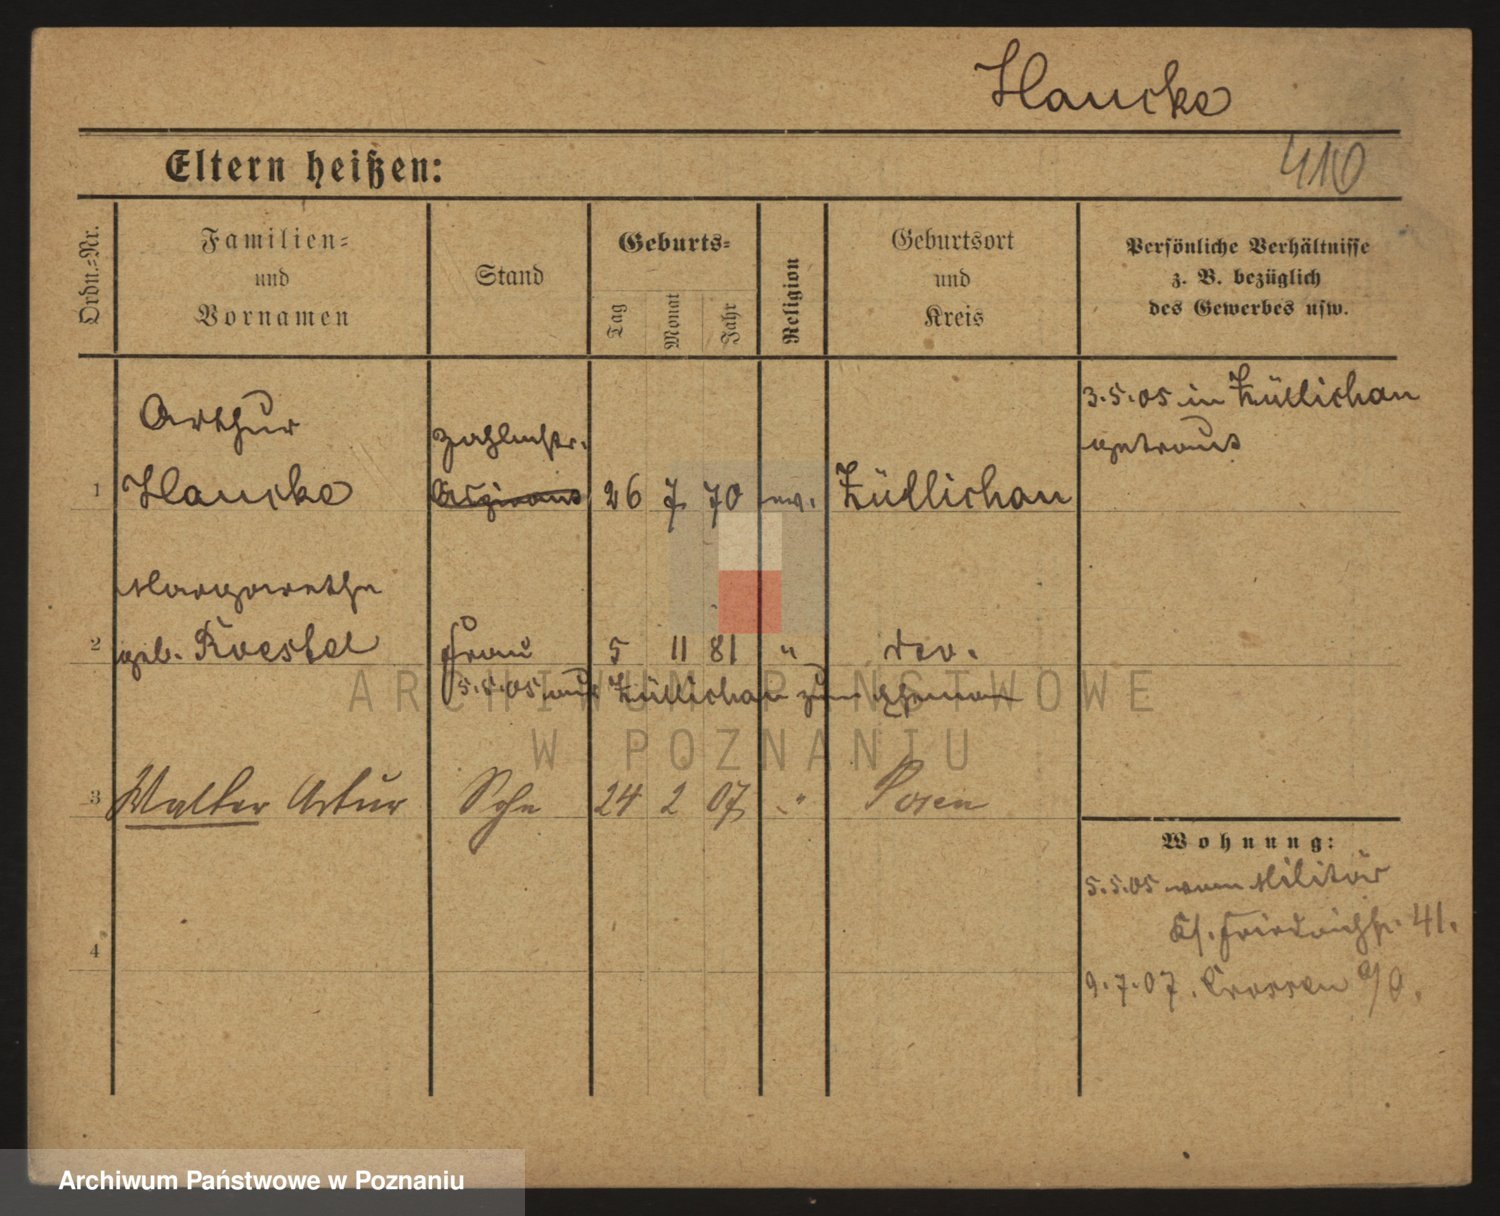 Hancke
410
Eltern heißen:
Ordn.-Nr.
Familien-
und
Vornamen
Stand
Geburts-
Tag
Monat
Jahr
Religion
Geburtsort
und
Kreis
Persönliche Verhältnisse
z. B. bezüglich
des Gewerbes usw.
3.5.05 in Züllichau
getraut
Arthur
Zahlmstr.
1 Hancke Aspirant 26 7 70 ev. Züllichau
Margarethe
2 geb. Kostel Frau 5 11 81 " do.
5.5.05 aus Züllichau zum Ehemann
3 Walter Artur Sohn 24 2 07 " Posen
Wohnung:
5.5.05 vom Militär
Ks. Friedrichstr. 41.
4
9.7.07. Crossen a/O.
ARCHIWUM PAŃSTWOWE
W POZNANIU
Archiwum Państwowe w Poznaniu